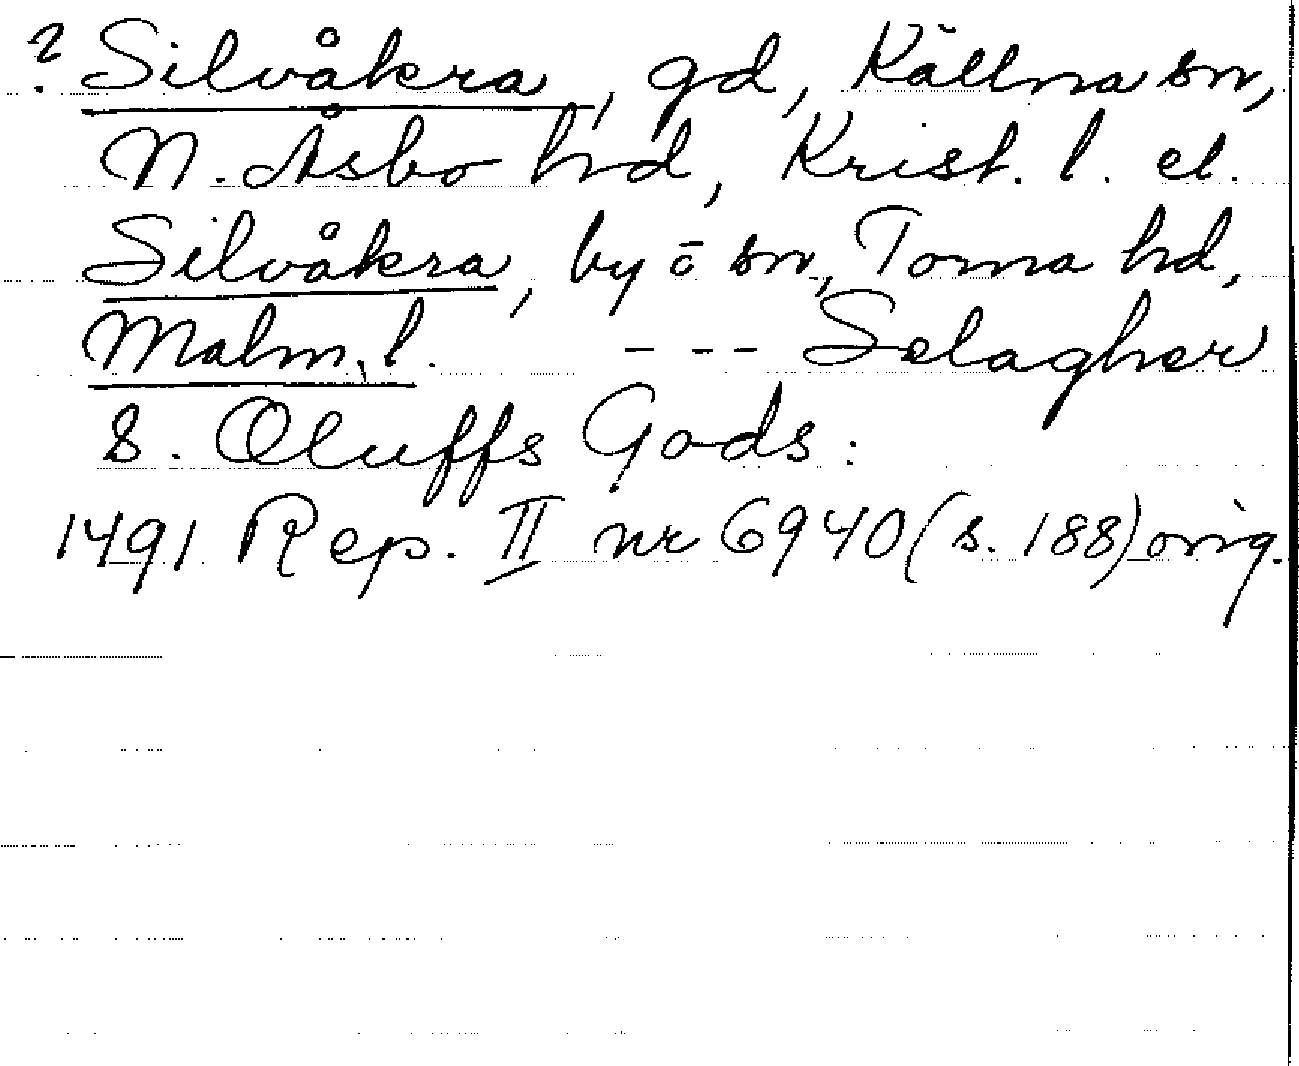 ? Silvåkra, gd, Källna sn,
N. Åsbo hd, Krist. l. el.
Silvåkra, by o sn, Torna hd,
Malm. l. --- Selagher
S. Oluffs Gods:
1491 Rep. II nr 6940 (s. 188) orig.